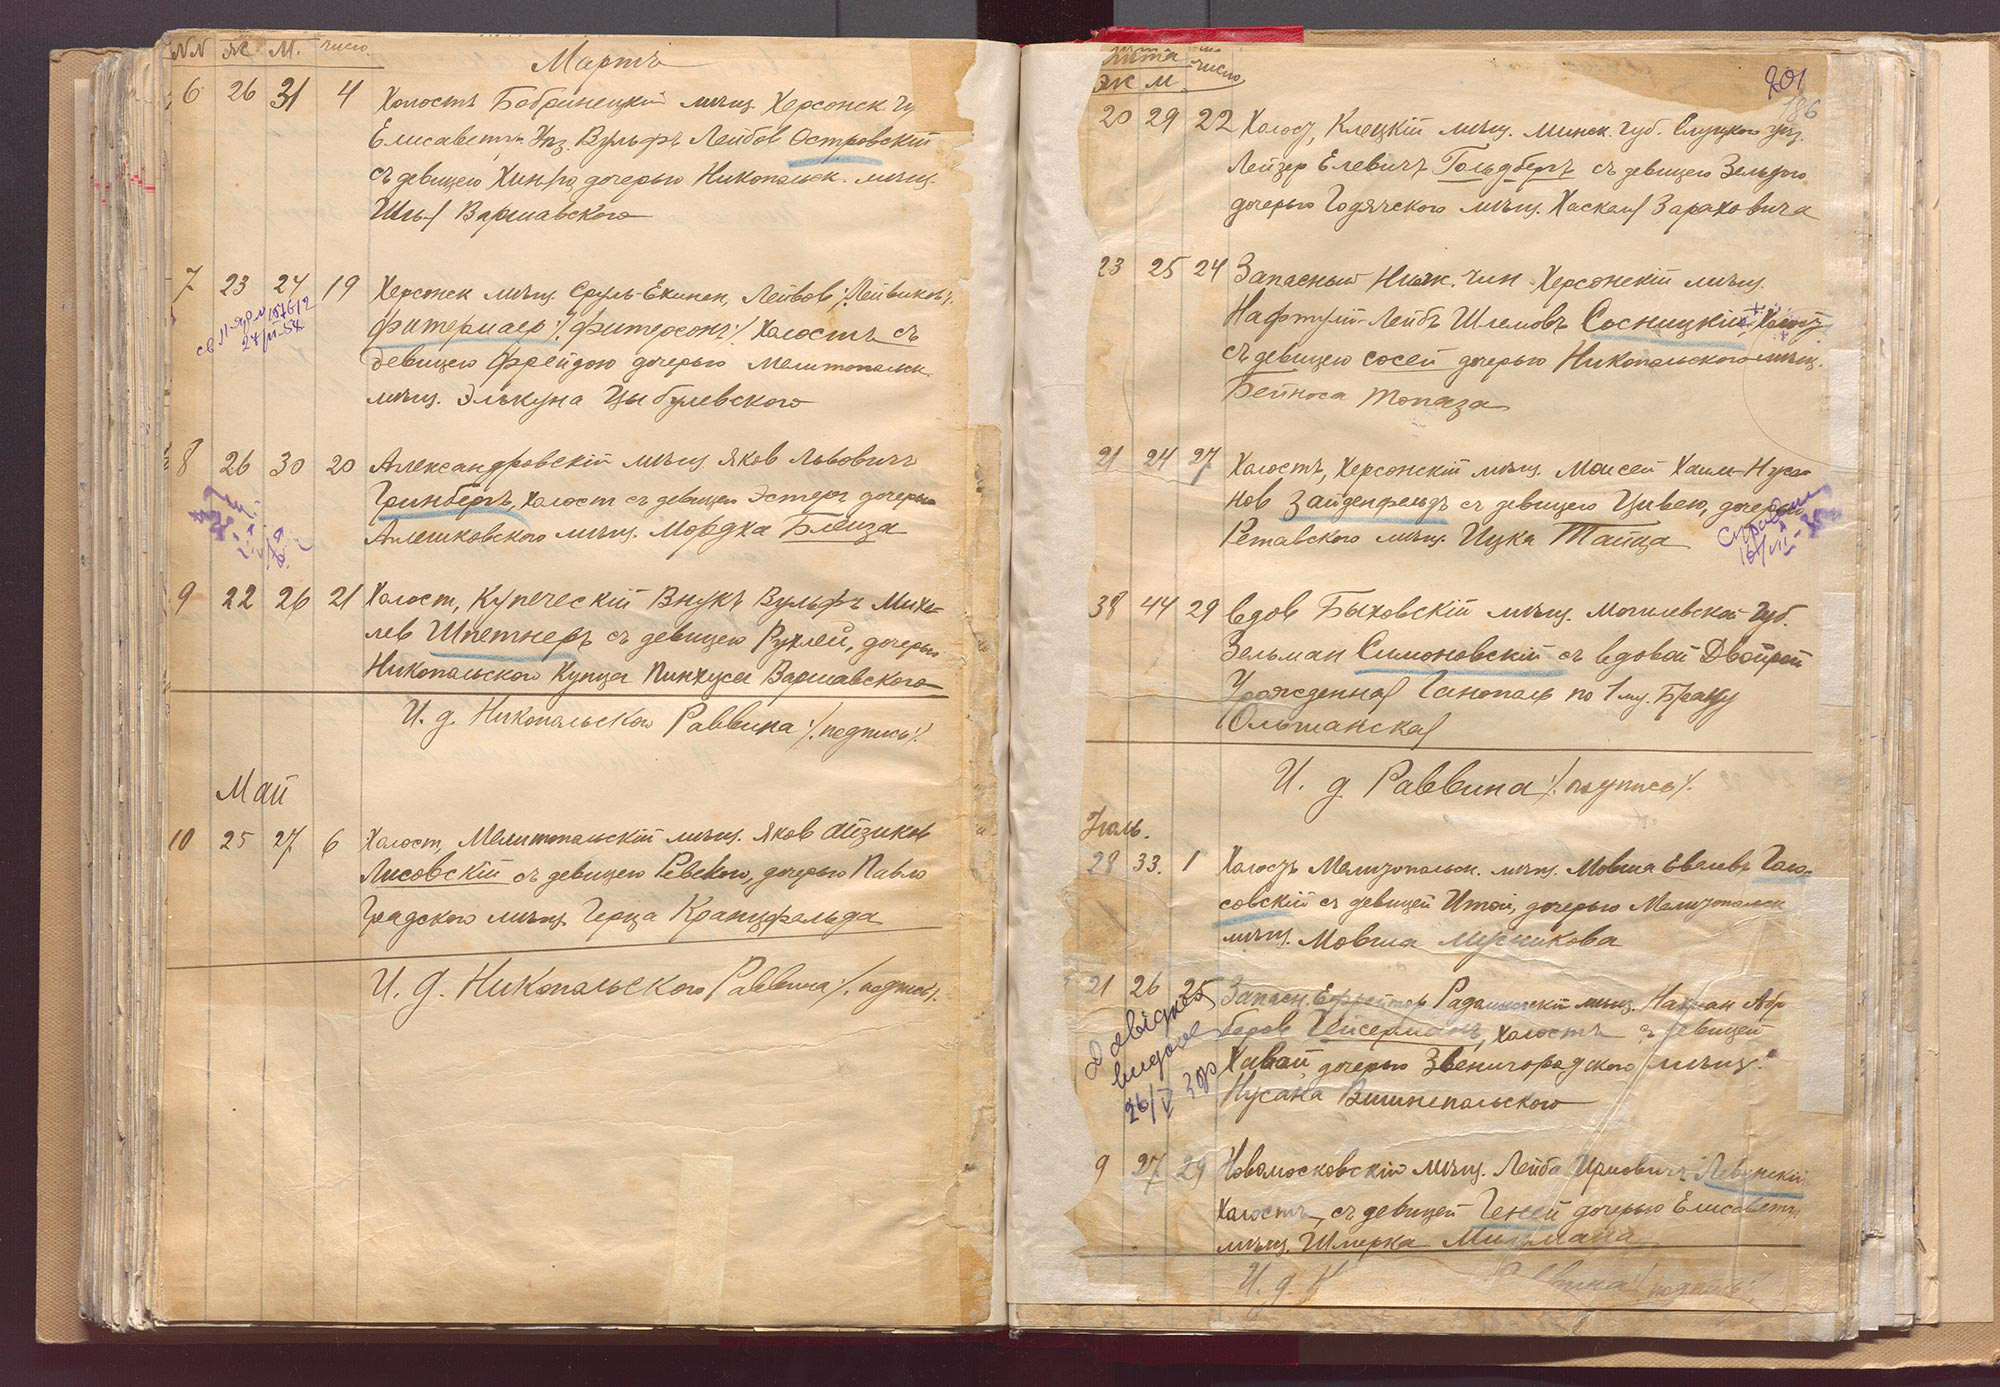 NN Ж М. число.
Мартъ
6 26 31 4 Холостъ Бобринецкій мѣщ. Херсонск. Гу
Елисаветгр. Уѣз. Вульфъ Лейбов Островскій
съ девицею Хинею, дочерью Никопольск. мѣщ.
Варшавского
7 23 24 19 Херсонск мѣщ. Сруль-Екисиел, Лейбов /:Лейвиков:/
Фитермаер /:Фитерсонъ:/ Холостъ съ
девицею Фрейдою дочерью Мелитопольск.
мѣщ. Элькуна Цыбулевского
8 26 30 20 Александровскій мѣщ. Яков Львовичъ
Гринбергъ, холост съ девицею Эстерою дочерью
Алешковского мѣщ. Мордха Блеиза
9 22 26 21 Холост, Купеческій Внукъ Вульфъ Михе-
лев Шпетнеръ съ девицею Рухлей, дочерью
Никопольского Купца Пинхуса Варшавского
И. д. Никопольского Раввина /:подпись:/
Май
10 25 27 6 Холост, Мелитопольскій мѣщ. Яков Айзиков
Лисовскій съ девицею Ревекою, дочерью Павло
Градского мѣщ. Герца Кранцфельда
И. д. Никопольского Раввина /:подпись:/
201
186
лѣта число
Ж М
20 29 22 Холост, Клецкій мѣщ. Минск. Губ. Слуцкого уѣз.
Лейзер Елевичъ Гольдбергъ съ девицею Зельдою
дочерью Годячского мѣщ. Хаскеля Зараховича
23 25 24 Запасный Нижн. чин Херсонскій мѣщ.
Нафтули-Лейбъ Шлемовъ Сосницкій Холостъ
съ девицею Сосей дочерью Никопольского мѣщ.
Бейноса Топаза
21 24 27 Холостъ, Херсонскій мѣщ. Моисей Хаим-Нуси-
нов Зайденфельдъ съ девицею Цивею, дочерью
Ретавского мѣщ. Ицка Тайца
38 44 29 Вдов Быховскій мѣщ. Могилевской Губ.
Зельман Симоновскій съ вдовой Двойрой
Урожденная Ганополь по 1му. Браку
Ольшанская
И. д. Раввина /:подпись:/
Іюль.
28 33. 1 Холостъ Мелитопольск. мѣщ. Мовша Евелевъ Гало-
совскій съ девицей Итой, дочерью Мелитопольск
мѣщ. Мовша Мусникова
21 26 25 Запасн. Ефрейтор мѣщ. Нахман Абр
Гейсерманъ, холостъ съ девицей
Хавой дочерью Звенигородского мѣщ.
Нусана Вишнепольского
9 27 29 Новомосковскій мѣщ. Лейба Левинскій
Холостъ, съ девицей Геней дочерью Елисаветгр.
мѣщ. Шмерка
И. д. Н Раввина /:подпись:/